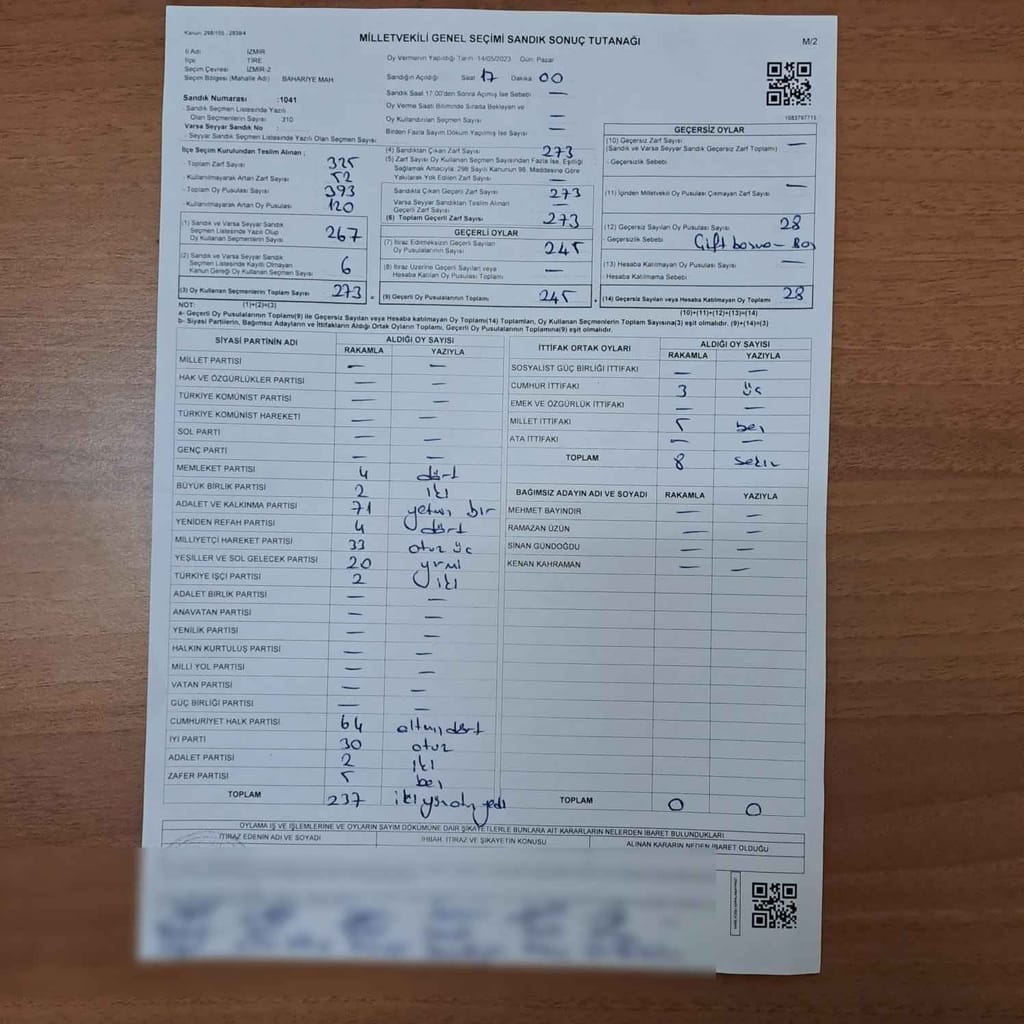 Kanun: 298/105 , 2839/4
MİLLETVEKİLİ GENEL SEÇİMİ SANDIK SONUÇ TUTANAĞI
M/2
İl Adı İZMİR
İlçe TİRE
Seçim Çevresi İZMİR-2
Seçim Bölgesi (Mahalle Adı) BAHARİYE MAH.
Sandık Numarası :1041
Sandık Seçmen Listesinde Yazılı
Olan Seçmenlerin Sayısı 310
Varsa Seyyar Sandık No :
- Seyyar Sandık Listesinde Yazılı Olan Seçmen Sayısı
İlçe Seçim Kurulundan Teslim Alınan ;
- Toplam Zarf Sayısı 325
- Kullanılmayarak Artan Zarf Sayısı 52
- Toplam Oy Pusulası Sayısı 393
- Kullanılmayarak Artan Oy Pusulası 120
(1) Sandık ve Varsa Seyyar Sandık
Seçmen Listesinde Yazılı Olup
Oy Kullanan Seçmenlerin Sayısı 267
(2) Sandık ve Varsa Seyyar Sandık
Seçmen Listesinde Kayıtlı Olmayan
Kanun Gereği Oy Kullanan Seçmen Sayısı 6
(3) Oy Kullanan Seçmenlerin Toplam Sayısı 273
(1)+(2)=(3)
Oy Vermenin Yapıldığı Tarih: 14/05/2023 Gün: Pazar
Sandığın Açıldığı Saat 17 Dakika 00
Sandık Saat 17:00'den Sonra Açılmış İse Sebebi —
Oy Verme Saati Bitiminde Sırada Bekleyen ve
Oy Kullandırılan Seçmen Sayısı —
Birden Fazla Sayım Döküm Yapılmış İse Sayısı —
(4) Sandıktan Çıkan Zarf Sayısı 273
(5) Zarf Sayısı Oy Kullanan Seçmen Sayısından Fazla İse, Eşitliği
Sağlamak Amacıyla; 298 Sayılı Kanunun 98. Maddesine Göre
Yakılarak Yok Edilen Zarf Sayısı —
Sandıkta Çıkan Geçerli Zarf Sayısı 273
Varsa Seyyar Sandıktan Teslim Alınan
Geçerli Zarf Sayısı —
(6) Toplam Geçerli Zarf Sayısı 273
GEÇERLİ OYLAR
(7) İtiraz Edilmeksizin Geçerli Sayılan
Oy Pusulalarının Sayısı 245
(8) İtiraz Üzerine Geçerli Sayılan veya
Hesaba Katılan Oy Pusulası Toplamı —
= (9) Geçerli Oy Pusulalarının Toplamı 245
1083797715
GEÇERSİZ OYLAR
(10) Geçersiz Zarf Sayısı —
(Sandık ve Varsa Seyyar Sandık Geçersiz Zarf Toplamı)
- Geçersizlik Sebebi
(11) İçinden Milletvekili Oy Pusulası Çıkmayan Zarf Sayısı —
(12) Geçersiz Sayılan Oy Pusulası Sayısı 28
- Geçersizlik Sebebi
(13) Hesaba Katılmayan Oy Pusulası Sayısı —
Hesaba Katılmama Sebebi
+ (14) Geçersiz Sayılan veya Hesaba Katılmayan Oy Toplamı 28
(10)+(11)+(12)+(13)=(14)
NOT:
a- Geçerli Oy Pusulalarının Toplamı(9) ile Geçersiz Sayılan veya Hesaba katılmayan Oy Toplamı(14) Toplamları, Oy Kullanan Seçmenlerin Toplam Sayısına(3) eşit olmalıdır. (9)+(14)=(3)
b- Siyasi Partilerin, Bağımsız Adayların ve İttifakların Aldığı Ortak Oyların Toplamı, Geçerli Oy Pusulalarının Toplamına(9) eşit olmalıdır.
SİYASİ PARTİNİN ADI ALDIĞI OY SAYISI
RAKAMLA YAZIYLA
MİLLET PARTİSİ — —
HAK VE ÖZGÜRLÜKLER PARTİSİ — —
TÜRKİYE KOMÜNİST PARTİSİ — —
TÜRKİYE KOMÜNİST HAREKETİ — —
SOL PARTİ — —
GENÇ PARTİ — —
MEMLEKET PARTİSİ 4 dört
BÜYÜK BİRLİK PARTİSİ 2 iki
ADALET VE KALKINMA PARTİSİ 71 yetmiş bir
YENİDEN REFAH PARTİSİ 4 dört
MİLLİYETÇİ HAREKET PARTİSİ 33 otuz üç
YEŞİLLER VE SOL GELECEK PARTİSİ 20 yrmi
TÜRKİYE İŞÇİ PARTİSİ 2 iki
ADALET BİRLİK PARTİSİ — —
ANAVATAN PARTİSİ — —
YENİLİK PARTİSİ — —
HALKIN KURTULUŞ PARTİSİ — —
MİLLİ YOL PARTİSİ — —
VATAN PARTİSİ — —
GÜÇ BİRLİĞİ PARTİSİ — —
CUMHURİYET HALK PARTİSİ 64 altmış dört
İYİ PARTİ 30 otuz
ADALET PARTİSİ 2 iki
ZAFER PARTİSİ 5 beş
TOPLAM 237 iki yüz otuz yedi
İTTİFAK ORTAK OYLARI ALDIĞI OY SAYISI
RAKAMLA YAZIYLA
SOSYALİST GÜÇ BİRLİĞİ İTTİFAKI — —
CUMHUR İTTİFAKI 3 üç
EMEK VE ÖZGÜRLÜK İTTİFAKI — —
MİLLET İTTİFAKI 5 beş
ATA İTTİFAKI — —
TOPLAM 8 sekiz
BAĞIMSIZ ADAYIN ADI VE SOYADI RAKAMLA YAZIYLA
MEHMET BAYINDIR — —
RAMAZAN ÜZÜN — —
SİNAN GÜNDOĞDU — —
KENAN KAHRAMAN — —
TOPLAM 0 0
OYLAMA İŞ VE İŞLEMLERİNE VE OYLARIN SAYIM DÖKÜMÜNE DAİR ŞİKAYETLERLE BUNLARA AİT KARARLARIN NELERDEN İBARET BULUNDUKLARI
İTİRAZ EDENİN ADI VE SOYADI İHBAR, İTİRAZ VE ŞİKAYETİN KONUSU ALINAN KARARIN NEDEN İBARET OLDUĞU